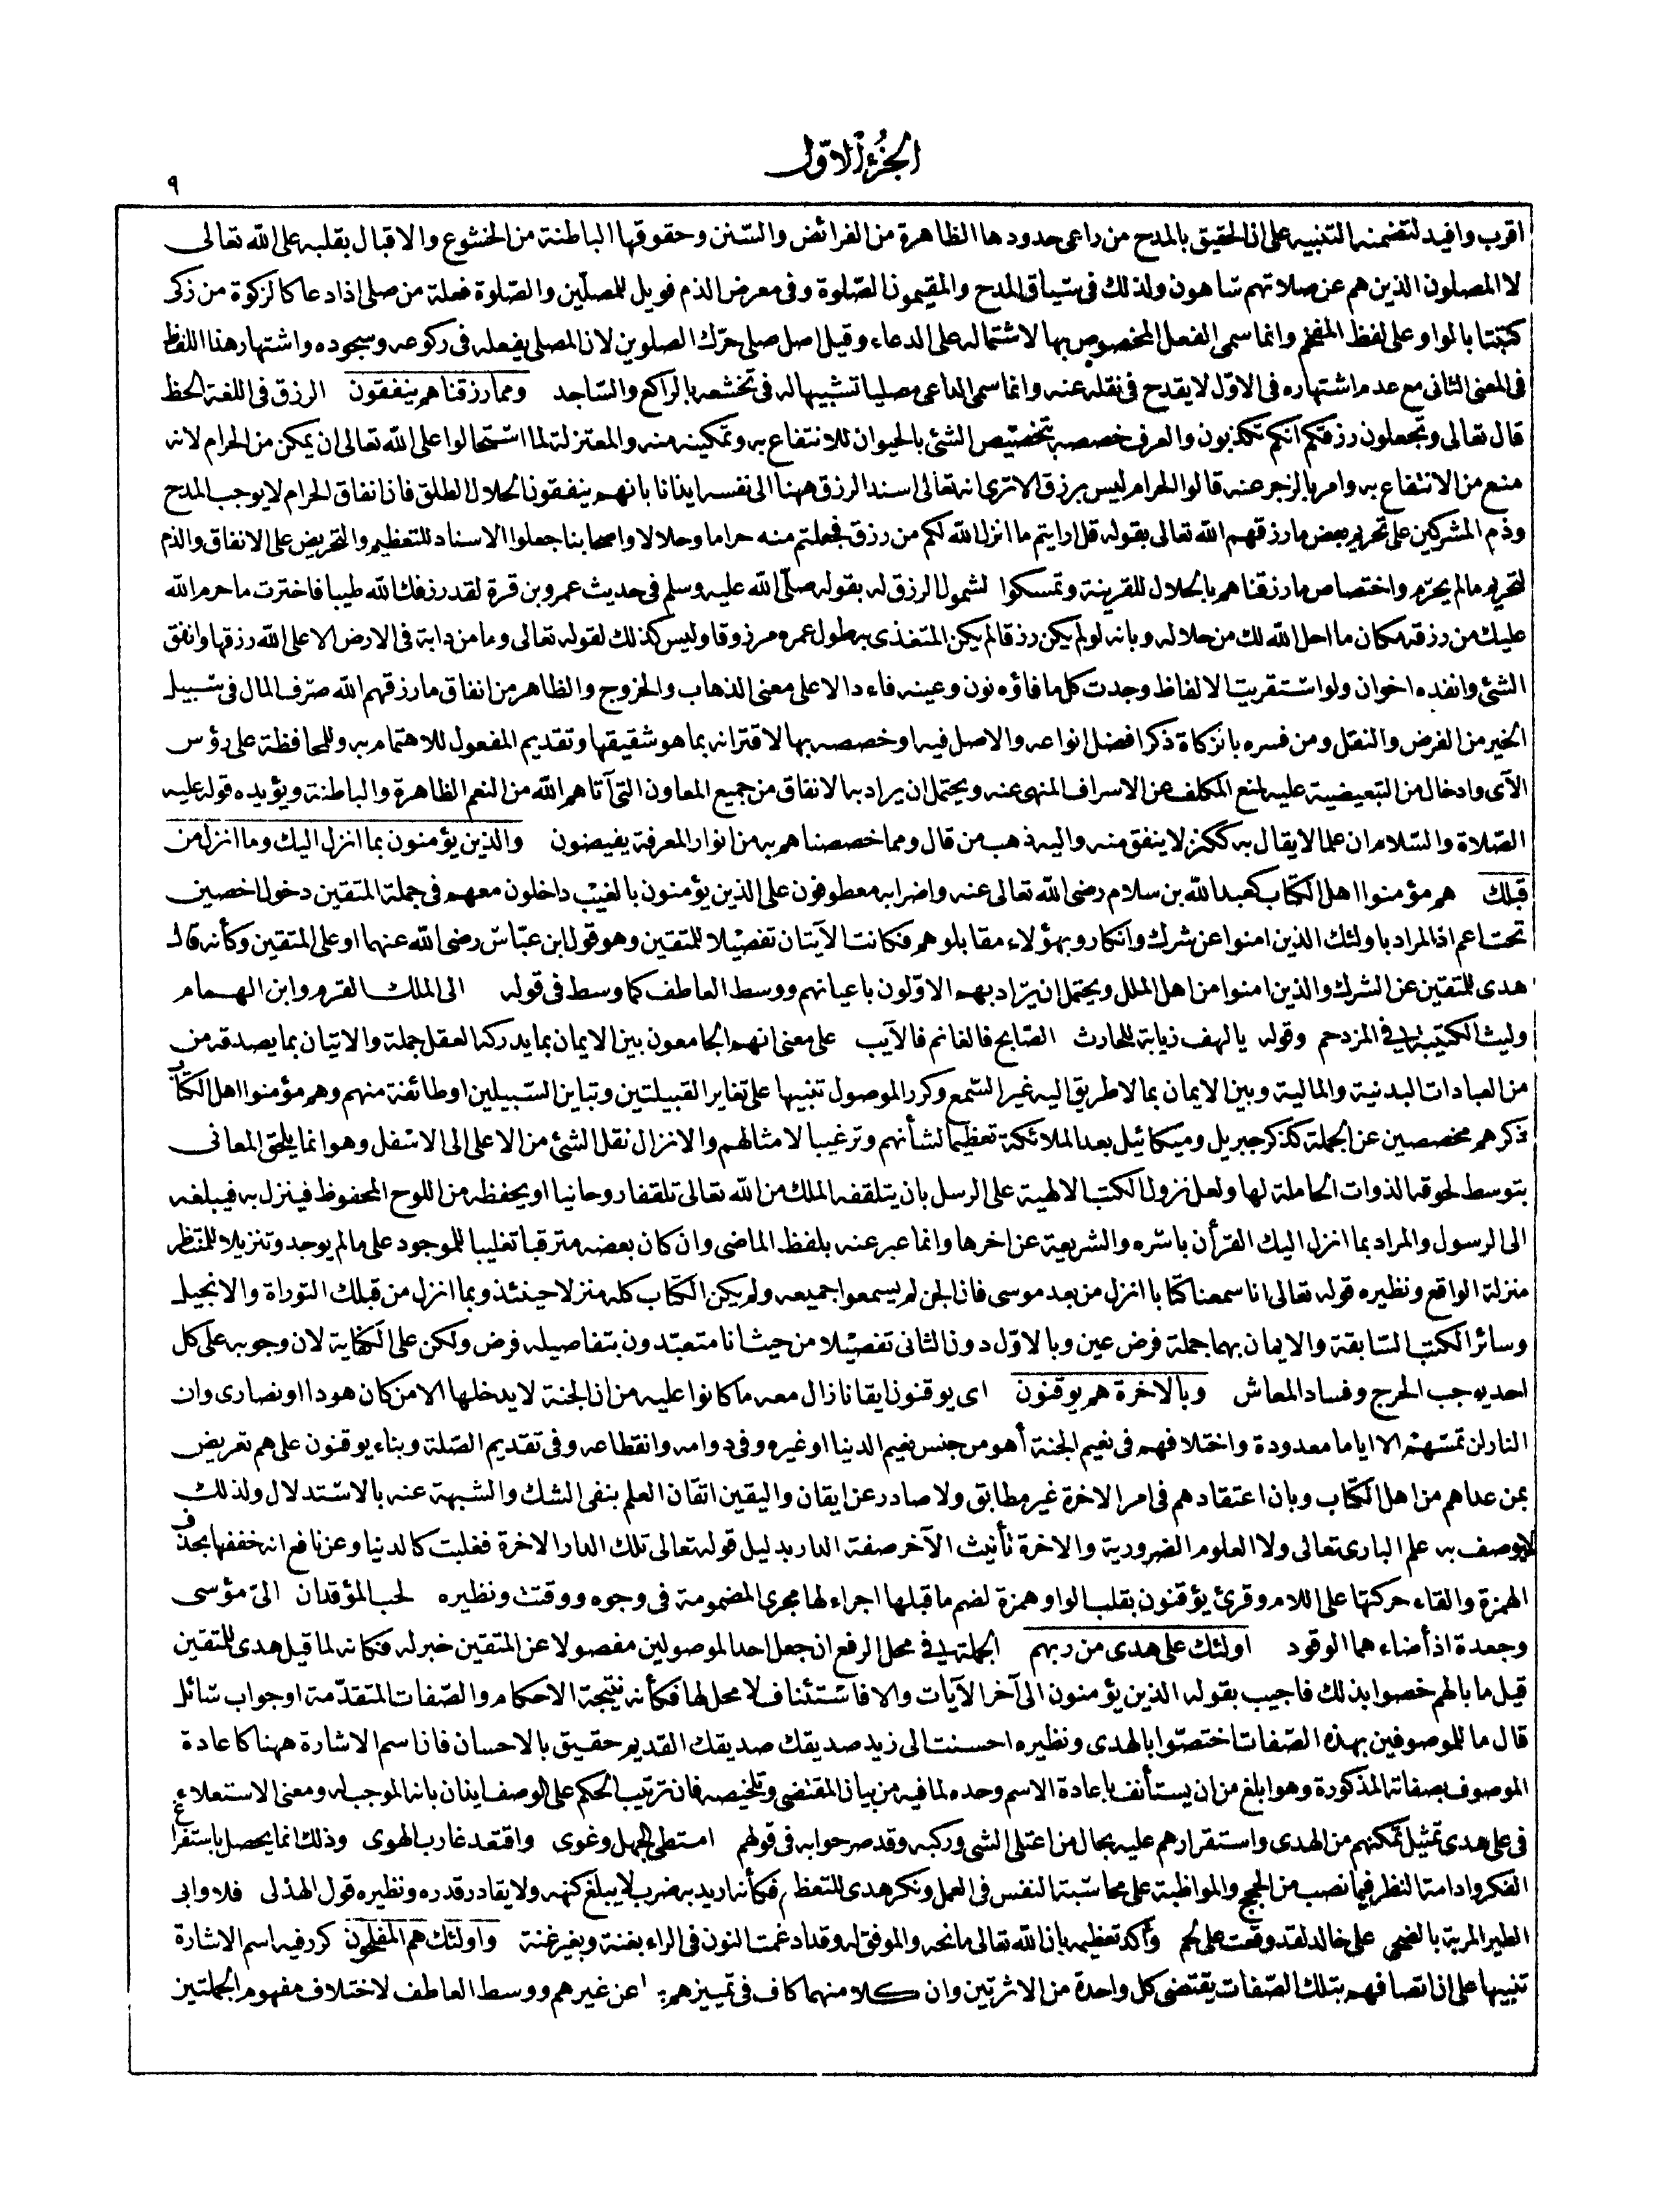 الجزء الاوّل
٩
اقرب وافيد لتضمنه التنبيه على ان الحقيق بالمدح من راعى حدودها الظاهرة من الفرائض والسّنن وحقوقها الباطنة من الخشوع والاقبال بقلبه على الله تعالى
لا المصلون الذين هم عن صلاتهم ساهون ولذلك فى سياق المدح والمقيمون الصّلوة وفى معرض الذم فويل للمصلّين والصّلوة فعلة من صلى اذا دعا كالزكوة من زكى
كتبتا بالواو على لفظ المفخم وانما سمى الفعل المخصوص بها لاشتماله على الدعاء وقيل اصل صلى حرّك الصلوين لان المصلى يفعله فى ركوعه وسجوده واشتهار هذا اللفظ
فى المعنى الثانى مع عدم اشتهاره فى الاوّل لا يقدح فى نقله عنه وانما سمى الداعى مصليا تشبيها له فى تخشعه بالراكع والسّاجد ومما رزقناهم ينفقون الرزق فى اللغة الحظ
قال تعالى وتجعلون رزقكم انكم تكذبون والعرف خصصه بتخصيص الشئ بالحيوان للانتفاع به وتمكينه منه والمعتزلة لما استحالوا على الله تعالى ان يمكن من الحرام لانه
منع من الانتفاع به وامر بالزجر عنه قالوا الحرام ليس برزق الا ترى انه تعالى اسند الرزق ههنا الى نفسه ايذانا بانهم ينفقون الحلال الطلق فان انفاق الحرام لا يوجب المدح
وذم المشركين على تحريم بعض ما رزقهم الله تعالى بقوله قل ارايتم ما انزل الله لكم من رزق فجعلتم منه حراما وحلالا واصحابنا جعلوا الاسناد للتعظيم والتحريض على الانفاق والذم
لتحريم مالم يحرّم واختصاص ما رزقناهم بالحلال للقرينة وتمسكوا لشمول الرزق له بقوله صلّى الله عليه وسلم فى حديث عمرو بن قرة لقد رزقك الله طيبا فاخترت ما حرم الله
عليك من رزقه مكان ما احل الله لك من حلاله وبانه لو لم يكن رزقا لم يكن المتغذى به طول عمره مرزوقا وليس كذلك لقوله تعالى وما من دابة فى الارض الا على الله رزقها وانفق
الشئ وانفده اخوان ولو استقريت الالفاظ وجدت كل ما فاؤه نون وعينه فاء دالا على معنى الذهاب والخروج والظاهر من انفاق ما رزقهم الله صرف المال فى سبيل
الخير من الفرض والنفل ومن فسره بالزكاة ذكر افضل انواعه والاصل فيه او خصصه بها لاقترانه بما هو شقيقها وتقديم المفعول للاهتمام به وللمحافظة على رؤس
الآى وادخال من التبعيضية عليه لمنع المكلف عن الاسراف المنهى عنه ويحتمل ان يراد به الانفاق من جميع المعاون التى آتاهم الله من النعم الظاهرة والباطنة ويؤيده قوله عليه
الصّلاة والسّلام ان علما لا يقال به ككنز لا ينفق منه واليه ذهب من قال ومما خصصناهم به من انوار المعرفة يفيضون والذين يؤمنون بما انزل اليك وما انزل من
قبلك هم مؤمنوا اهل الكتاب كعبد الله بن سلام رضى الله تعالى عنه واضرابه معطوفون على الذين يؤمنون بالغيب داخلون معهم فى جملة المتقين دخول اخصين
تحت اعم اذ المراد باولئك الذين امنوا عن شرك وانكار وبهؤلاء مقابلوهم فكانت الآيتان تفصيلا للمتقين وهو قول ابن عبّاس رضى الله عنهما او على المتقين وكأنه قال
هدى للمتقين عن الشرك والذين امنوا من اهل الملل ويحتمل ان يراد بهم الاوّلون باعيانهم ووسط العاطف كما وسط فى قوله الى الملك القرم وابن الهمام
وليث الكتيبة فى المزدحم وقوله يالهف زيابة للحارث الصّابح فالغانم فالآيب على معنى انهم الجامعون بين الايمان بما يدركه العقل جملة والاتيان بما يصدقه من
من العبادات البدنية والمالية وبين الايمان بما لا طريق اليه غير السّمع وكرر الموصول تنبيها على تغاير القبيلتين وتباين السّبيلين او طائفة منهم وهم مؤمنوا اهل الكتاب
ذكرهم مخصصين عن الجملة كذكر جبريل وميكائيل بعد الملائكة تعظيما لشأنهم وترغيبا لامثالهم والانزال نقل الشئ من الاعلى الى الاسفل وهو انما يلحق المعانى
بتوسط لحوقه الذوات الحاملة لها ولعل نزول الكتب الالهية على الرسل بان يتلقفه الملك من الله تعالى تلقفا روحانيا او يحفظه من اللوح المحفوظ فينزل به فيبلغه
الى الرسول والمراد بما انزل اليك القرأن باسره والشريعة عن اخرها وانما عبر عنه بلفظ الماضى وان كان بعضه مترقبا تغليبا للموجود على مالم يوجد وتنزيلا للمنتظر
منزلة الواقع ونظيره قوله تعالى انا سمعنا كتابا انزل من بعد موسى فان الجن لم يسمعوا جميعه ولم يكن الكتاب كله منزلا حينئذ وبما انزل من قبلك التوراة والانجيل
وسائر الكتب السّابقة والايمان بهما جملة فرض عين وبالاوّل دون الثانى تفصيلا من حيث انا متعبّدون بتفاصيله فرض ولكن على الكفاية لان وجوبه على كل
احد يوجب الحرج وفساد المعاش وبالاخرة هم يوقنون اى يوقنون ايقانا زال معه ما كانوا عليه من ان الجنة لا يدخلها الا من كان هودا او نصارى وان
النار لن تمسّهم الا اياما معدودة واختلافهم فى نعيم الجنة أهو من جنس نعيم الدنيا او غيره وفى دوامه وانقطاعه وفى تقديم الصّلة وبناء يوقنون على هم تعريض
بمن عداهم من اهل الكتاب وبان اعتقادهم فى امر الاخرة غير مطابق ولا صادر عن ايقان واليقين اتقان العلم بنفى الشك والشبهة عنه بالاستدلال ولذلك
لا يوصف به علم البارى تعالى ولا العلوم الضرورية والاخرة تأنيث الآخر صفة الدار بدليل قوله تعالى تلك الدار الاخرة فغلبت كالدنيا وعن نافع انه خففها بحذف
الهمزة والقاء حركتها على اللام وقرئ يؤقنون بقلب الواو همزة لضم ما قبلها اجراء لها مجرى المضمومة فى وجوه ووقتت ونظيره لحب المؤقدان الىّ مؤسى
وجعدة اذ أضاءهما الوقود اولئك على هدى من ربهم الجملة فى محل الرفع ان جعل احد الموصولين مفصولا عن المتقين خبر له فكانه لما قيل هدى للمتقين
قيل ما بالهم خصوا بذلك فاجيب بقوله الذين يؤمنون الى آخر الآيات والا فاستئناف لا محل لها فكأنه نتيجة الاحكام والصّفات المتقدّمة او جواب سائل
قال ما للموصوفين بهذه الصّفات اختصّوا بالهدى ونظيره احسنت الى زيد صديقك صديقك القديم حقيق بالاحسان فان اسم الاشارة ههنا كاعادة
الموصوف بصفاته المذكورة وهو ابلغ من ان يستأنف باعادة الاسم وحده لما فيه من بيان المقتضى وتلخيصه فان ترتيب الحكم على الوصف ايذان بانه الموجب له ومعنى الاستعلاء
فى على هدى تمثيل تمكنهم من الهدى واستقرارهم عليه بحال من اعتلى الشئ وركبه وقد صرحوا به فى قولهم امتطى الجهل وغوى واقتعد غارب الهوى وذلك انما يحصل باستفراغ
الفكر وادامة النظر فيما نصب من الحجج والمواظبة على محاسبة النفس فى العمل ونكر هدى للتعظيم فكأنه اريد به ضرب لا يبلغ كنهه ولا يقادر قدره ونظيره قول الهذلى فلا وابى
الطير المربة بالضحى على خالد لقد وقعت على لحم وأكد تعظيمه بان الله تعالى مانحه والموفق له وقد ادغمت النون فى الراء بغنة وبغير غنة واولئك هم المفلحون كرر فيه اسم الاشارة
تنبيها على ان اتصافهم بتلك الصّفات يقتضى كل واحدة من الاثرتين وان كلا منهما كاف فى تمييزهم بها عن غيرهم ووسط العاطف لاختلاف مفهوم الجملتين